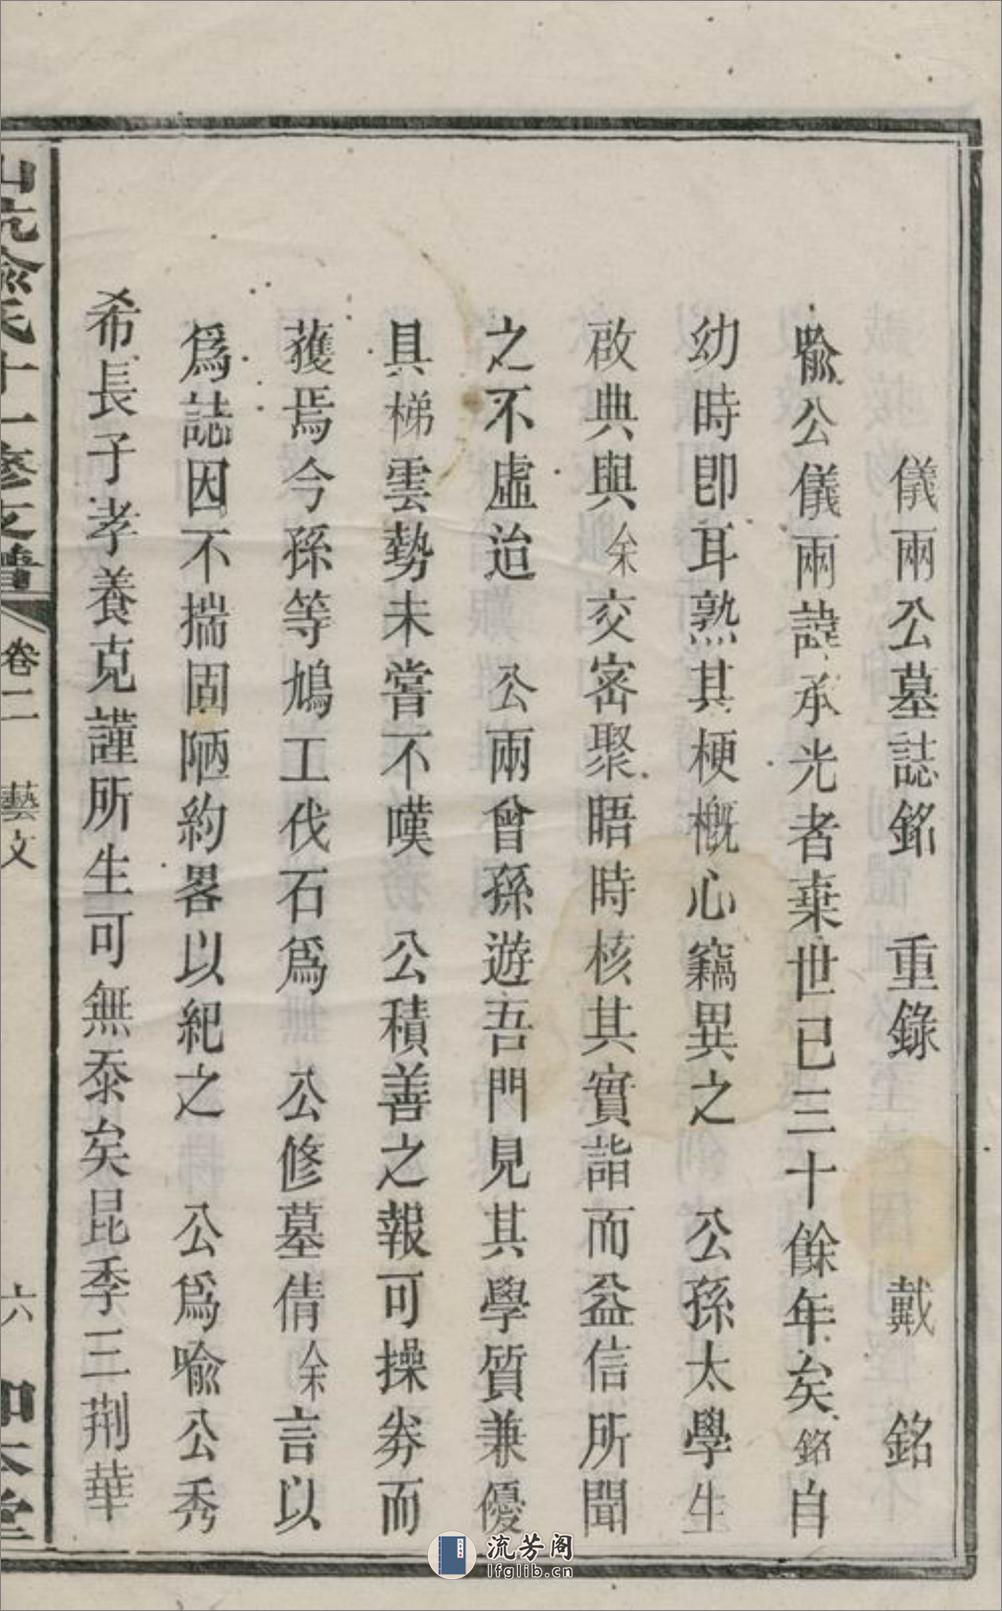 儀兩公墓誌銘　重錄　戴　銘
喩公儀兩諱承光者棄世已三十餘年矣銘自
幼時卽耳熟其梗槪心竊異之　公孫太學生
啟典與余交密聚晤時核其實詣而益信所聞
之不虛迨　公兩曾孫遊吾門見其學質兼優
具梯雲勢未嘗不嘆　公積善之報可操券而
獲焉今孫等鳩工伐石爲　公修墓倩余言以
爲誌因不揣固陋約畧以紀之　公爲喩公秀
希長子孝養克謹所生可無忝矣昆季三荆華
卷二　藝文
六
流芳阁
lfglib.cn